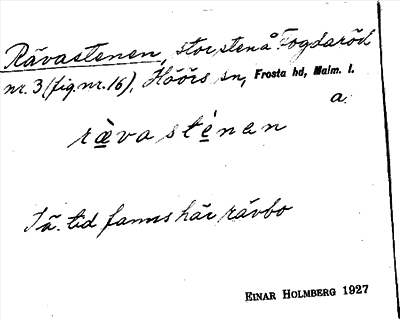 Rävastenen, stor sten å Fogdaröd
nr. 3 (fig. nr. 16), Höörs sn, Frosta hd, Malm. l.
a.
rävasténen
I ä. tid fanns här rävbo
EINAR HOLMBERG 1927